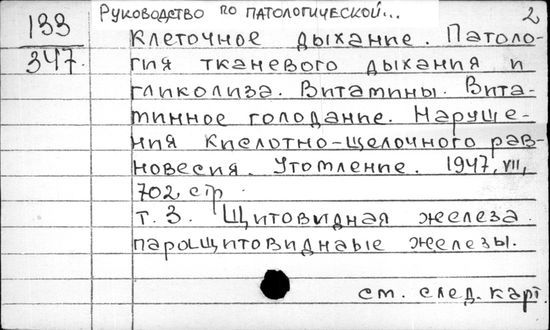 Руководство по патологической... 2
133
347
Клеточное дыхание. Патоло-
гия тканевого дыхания и
гликолиза. Витамины. Вита-
минное голодание. Наруше-
ния кислотно-щелочного рав-
новесия. Утомление. 1947, VII,
702 стр.
Т. 3. Щитовидная железа.
паращитовидные железы.
см. след. карт.